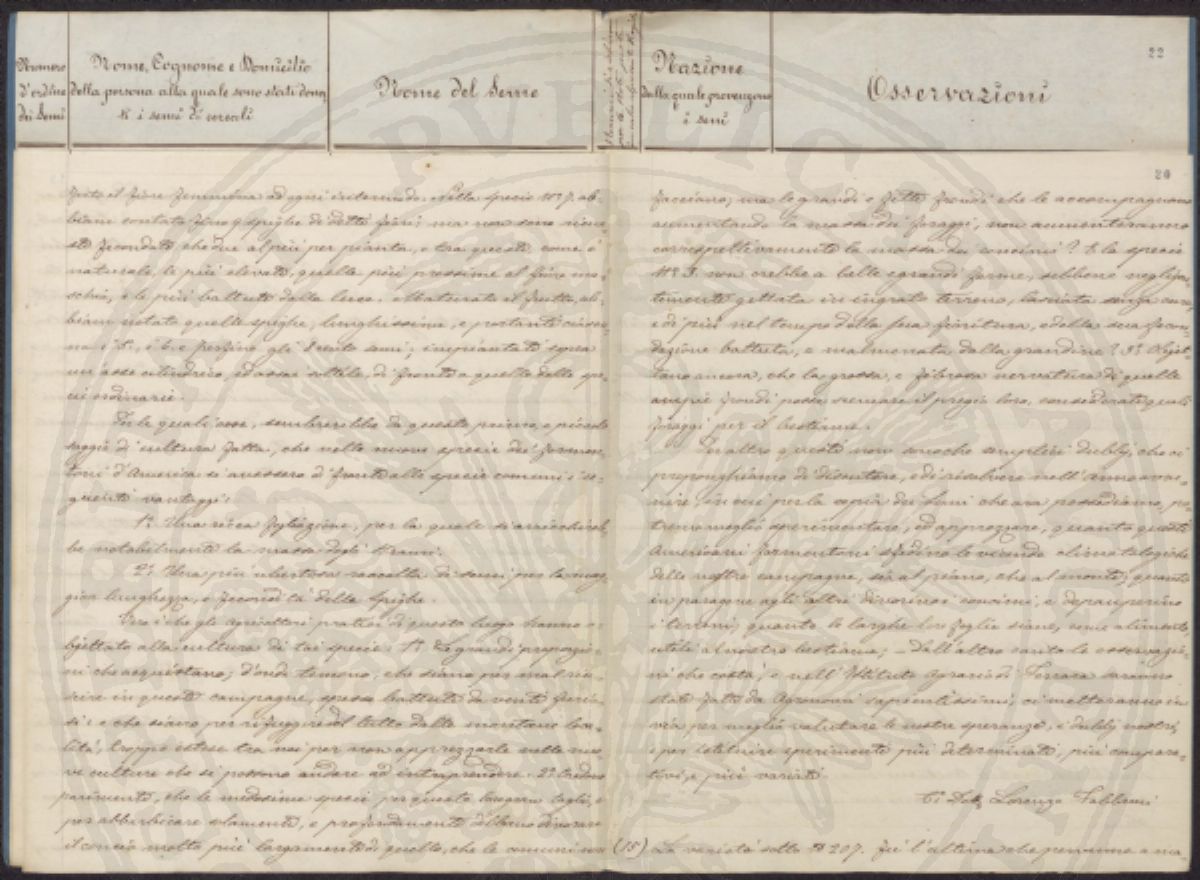 Numero
d'ordine
dei Semi
Nome, Cognome e Domicilio
della persona alla quale sono stati dona
ti i semi di cereali
Nome del Seme
Nazione
dalla quale provengono
i semi
Osservazioni
22
20
sesto il fiore femmineo ad ogni internodo. Nella specie Nº 7. ab-
biam contato fino 9 spighe di detti fiori; ma non sono rima-
ste fecondate che due al più per pianta, e tra queste come è
naturale, le più elevate, quelle più prossime al fiore ma-
schio, e le più battute dalla luce. Maturato il frutto, ab-
biam notato quelle spighe, lunghissime, e portanti ciascu-
na i 5., i 6. e perfino gli 8 cento semi; impiantate sopra
un asse cilindrico, ed assai sottile, di fronte a quello delle spe-
cie ordinarie.
Per le quali cose, sembrerebbe da questo primo, e piccolo
saggio di cultura fatta, che nelle nuove specie dei formen-
toni d'America si avessero di fronte alle specie comuni i se-
guenti vantaggi:
1º. Una ricca fogliazione, per la quale si arricchireb-
be notabilmente la massa degli strami.
2º. Una più ubertosa raccolta di semi per la mag-
gior lunghezza, e fecondità delle spighe.
Vero è che gli agricoltori pratici di questo luogo hanno o-
bjettato alla cultura di tai specie: 1º. Le grandi proporzio-
ni che acquistano; d'onde temono, che siano per mal riu-
scire in queste campagne, spesso battute da venti furio-
si: e che siano per rifuggire del tutto dalle montane loca-
lità, troppo estese tra noi per non apprezzarle nelle nuo-
ve culture che si possono andare ad intraprendere. 2º. Credono
parimenti, che le medesime specie per questo
per abbarbicare solamente, e profondamente debbano divorare
il concio molto più largamente di quello, che le comuni non
facciano; ma le grandi e fitte frondi che le accompagnano
aumentando la massa dei foraggi, non aumenteranno
corrispettivamente la massa dei concimi? E la specie
Nº 7. non crebbe a belle e grandi forme, sebbene negligen-
temente gettata in ingrato terreno, lasciata senza cure,
e di più nel tempo della sua fioritura, e della sua fecon-
dazione battuta, e malmenata dalla grandine? 3º. Objet-
tano ancora, che la grossa, e fibrosa nervatura di quelle
ampie frondi possa scemare il pregio loro, considerate quali
foraggi per il bestiame.
Per altro questi non sono che semplici dubbj, che ci
proponghiamo di discutere, e di risolvere nell'anno avve-
nire, in cui per la copia dei semi che ora possediamo, po-
tremo meglio sperimentare, ed apprezzare, quanto questi
Americani formentoni sfidino le vicende climatologiche
delle nostre campagne, sia al piano, che al monte; quanto
in paragone agli altri divorino i concimi, e depauperino
i terreni; quanto le larghe lor foglie siano, come alimento,
utili al nostro bestiame; – Dall'altro canto le osservazio-
ni che costà, e nell'Istituto Agrario di Ferrara saranno
state fatte da Agronomi sapientissimi, ci metteranno in
via, per meglio valutare le nostre speranze, i dubbj nostri,
e per istituire sperimenti più determinati, più compara-
tivi, e più variati.
Lorenzo
(15) La varietà sotto Nº 207. fu l'ultima che pervenne a ma-